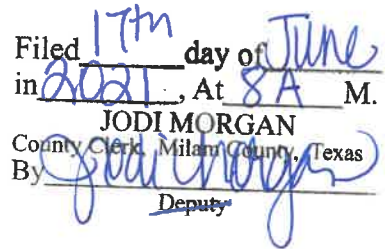 Filed 17th day of June
in 2021, At 8 A M.
JODI MORGAN
County Clerk, Milam County, Texas
By Jodi Morgan
Deputy